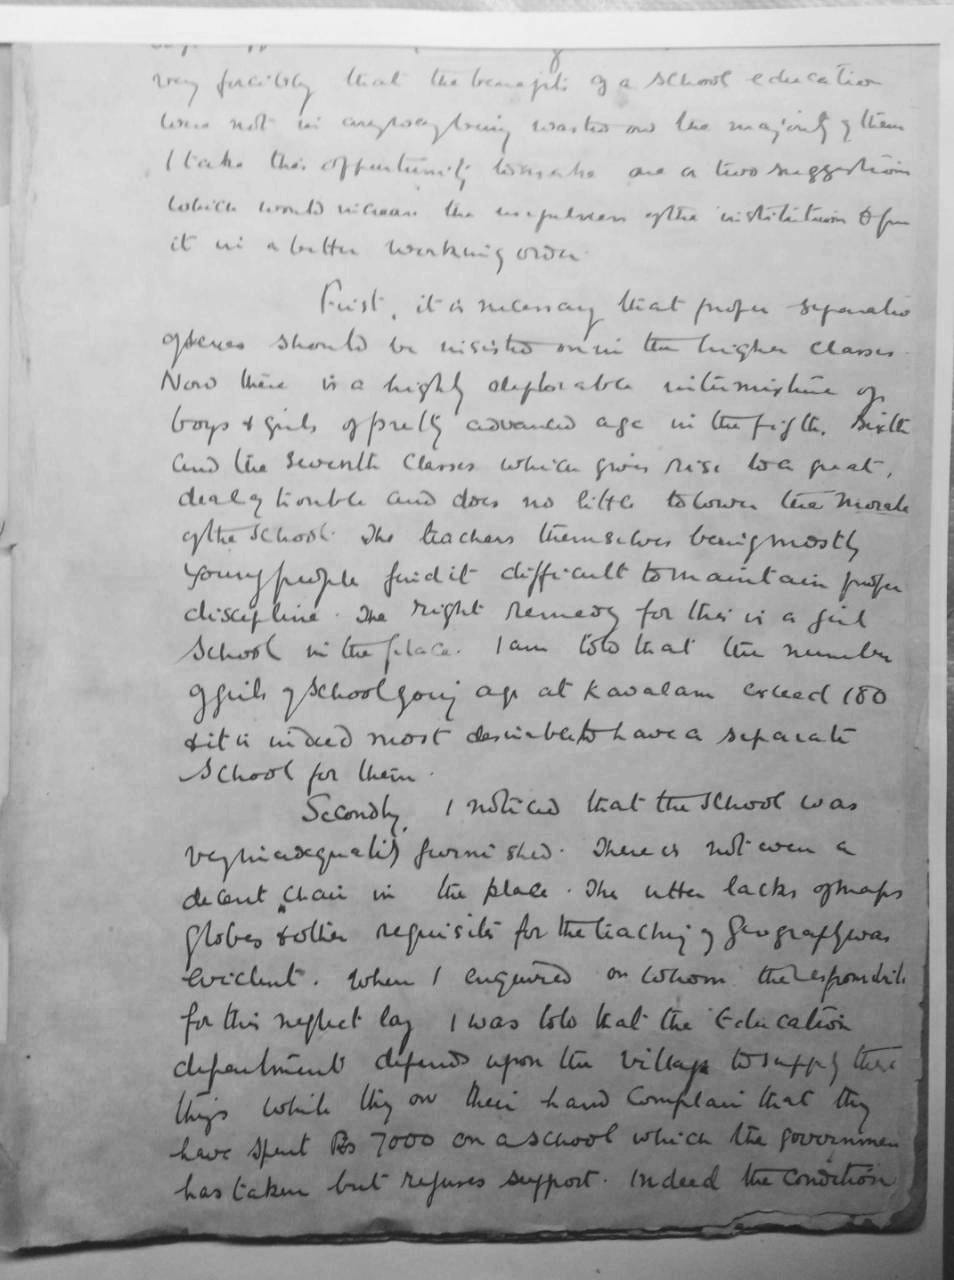 very forcibly that the benefits of a school education
were not in any way being wasted on the majority of them
I take this opportunity to make one or two suggestions
which would increase the usefulness of the institution &
it in a better working order.
First, it is necessary that proper separatio
of sexes should be insisted on in the higher classes.
Now there is a highly deplorable intermixture of
boys & girls of pretty advanced age in the fifth, Sixth
and the seventh classes which gives rise to a great,
deal of trouble and does no little to lower the morale
of the school. The teachers themselves being mostly
young people find it difficult to maintain proper
discipline. The right remedy for this is a girl
School in the place. I am told that the number
of girls of school going age at Kavalam exceed 180
& it is indeed most desirable to have a separate
School for them.
Secondly, I noticed that the school was
very inadequately furnished. There is not even a
decent chair in the place. The utter lacks of maps
globes & other requisites for the teaching of Geography was
evident. When I enquired on whom the responsibili
for this neglect lay I was told that the Education
department depends upon the village to supply these
things while they on their hand complain that they
have spent Rs 7000 on a school which the governmen
has taken but refuses support. Indeed the condition